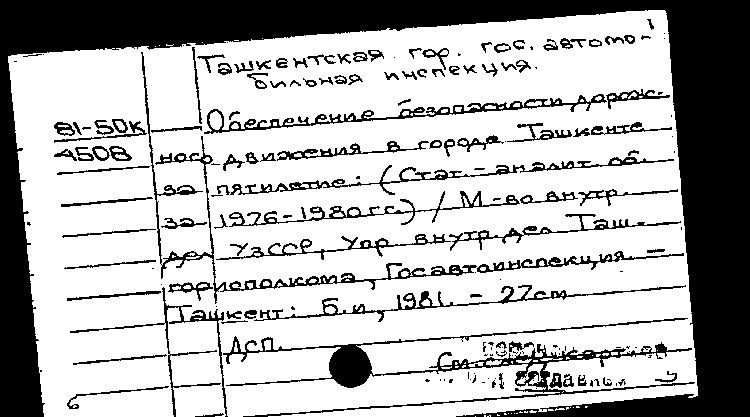 1
Ташкентская гор. гос. автомо-
бильная инспекция.
81-50К
4508
Обеспечение безопасности дорож-
ного движения в городе Ташкенте
за пятилетие: (Стат.-аналит. об.
за 1976-1980гг.) / М-во внутр.
дел УзССР, Упр внутр. дел Таш-
горисполкома, Госавтоинспекция. -
Ташкент: Б.и, 1981. - 27см
Дсп.
См. след. карточ
6